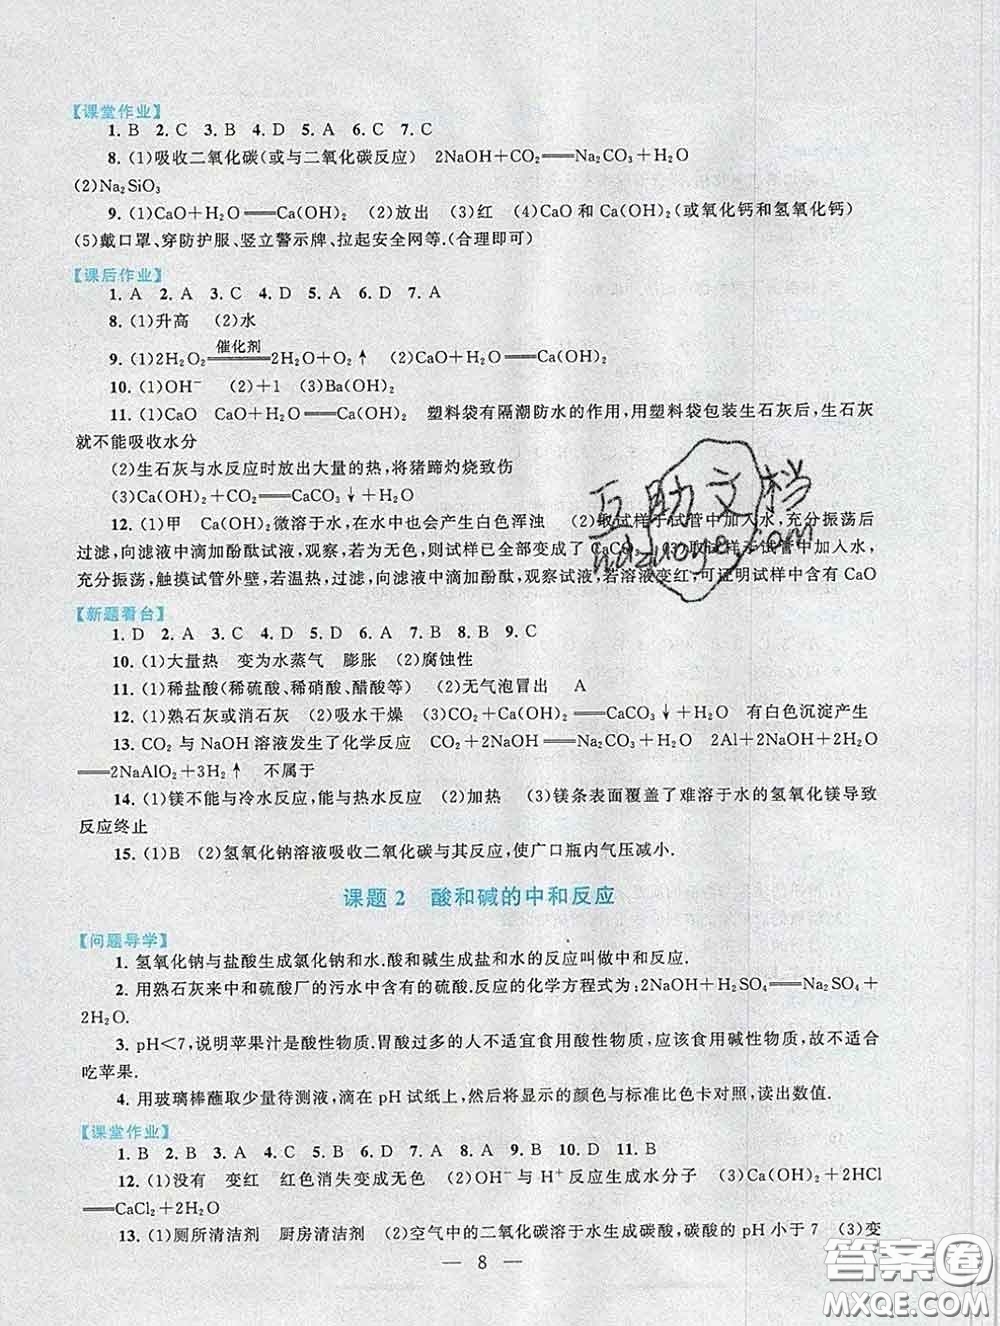 【课堂作业】
1. B 2. C 3. B 4. D 5. A 6. C 7. C
8. (1)吸收二氧化碳(或与二氧化碳反应) 2NaOH+CO₂══Na₂CO₃+H₂O
(2)Na₂SiO₃
9. (1)CaO+H₂O══Ca(OH)₂ (2)放出 (3)红 (4)CaO 和 Ca(OH)₂(或氧化钙和氢氧化钙)
(5)戴口罩、穿防护服、竖立警示牌、拉起安全网等.(合理即可)
【课后作业】
1. A 2. A 3. C 4. D 5. A 6. D 7. A
8. (1)升高 (2)水
9. (1)2H₂O₂ 催化剂══ 2H₂O+O₂↑ (2)CaO+H₂O══Ca(OH)₂
10. (1)OH⁻ (2)+1 (3)Ba(OH)₂
11. (1)CaO CaO+H₂O══Ca(OH)₂ 塑料袋有隔潮防水的作用,用塑料袋包装生石灰后,生石灰
就不能吸收水分
(2)生石灰与水反应时放出大量的热,将猪蹄灼烧致伤
(3)Ca(OH)₂+CO₂══CaCO₃↓+H₂O
12. (1)甲 Ca(OH)₂微溶于水,在水中也会产生白色浑浊 (2)取试样于试管中加入水,充分振荡后
过滤,向滤液中滴加酚酞试液,观察,若为无色,则试样已全部变成了 CaCO₃ (3)取试样于试管中加入水,
充分振荡,触摸试管外壁,若温热,过滤,向滤液中滴加酚酞,观察试液,若溶液变红,可证明试样中含有 CaO
【新题看台】
1. D 2. A 3. C 4. D 5. C 6. A 7. B 8. B 9. C
10. (1)大量热 变为水蒸气 膨胀 (2)腐蚀性
11. (1)稀盐酸(稀硫酸、稀硝酸、醋酸等) (2)无气泡冒出 A
12. (1)熟石灰或消石灰 (2)吸水干燥 (3)CO₂+Ca(OH)₂══CaCO₃↓+H₂O 有白色沉淀产生
13. CO₂ 与 NaOH 溶液发生了化学反应 CO₂+2NaOH══Na₂CO₃+H₂O 2Al+2NaOH+2H₂O
══2NaAlO₂+3H₂↑ 不属于
14. (1)镁不能与冷水反应,能与热水反应 (2)加热 (3)镁条表面覆盖了难溶于水的氢氧化镁导致
反应终止
15. (1)B (2)氢氧化钠溶液吸收二氧化碳与其反应,使广口瓶内气压减小.
课题 2 酸和碱的中和反应
【问题导学】
1. 氢氧化钠与盐酸生成氯化钠和水.酸和碱生成盐和水的反应叫做中和反应.
2. 用熟石灰来中和硫酸厂的污水中含有的硫酸.反应的化学方程式为:2NaOH+H₂SO₄══Na₂SO₄+
2H₂O.
3. pH<7,说明苹果汁是酸性物质.胃酸过多的人不适宜食用酸性物质,应该食用碱性物质,故不适合
吃苹果.
4. 用玻璃棒蘸取少量待测液,滴在 pH 试纸上,然后将显示的颜色与标准比色卡对照,读出数值.
【课堂作业】
1. B 2. B 3. A 4. B 5. B 6. D 7. A 8. A 9. B 10. D 11. B
12. (1)没有 变红 红色消失变成无色 (2)OH⁻与 H⁺反应生成水分子 (3)Ca(OH)₂+2HCl
══CaCl₂+2H₂O
13. (1)厕所清洁剂 厨房清洁剂 (2)空气中的二氧化碳溶于水生成碳酸,碳酸的 pH 小于 7 (3)变
— 8 —
互助文档
hdzuoye.com
答案圈
MXQE.COM